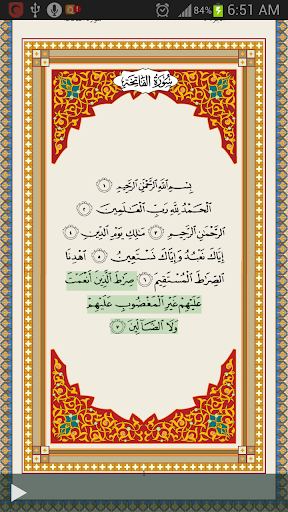 84% 6:51 AM
سُورَةُ الفَاتِحَةِ
بِسْمِ اللَّهِ الرَّحْمَٰنِ الرَّحِيمِ ١
الْحَمْدُ لِلَّهِ رَبِّ الْعَالَمِينَ ٢
الرَّحْمَٰنِ الرَّحِيمِ ٣ مَالِكِ يَوْمِ الدِّينِ ٤
إِيَّاكَ نَعْبُدُ وَإِيَّاكَ نَسْتَعِينُ ٥ اهْدِنَا
الصِّرَاطَ الْمُسْتَقِيمَ ٦ صِرَاطَ الَّذِينَ أَنْعَمْتَ
عَلَيْهِمْ غَيْرِ الْمَغْضُوبِ عَلَيْهِمْ
وَلَا الضَّالِّينَ ٧